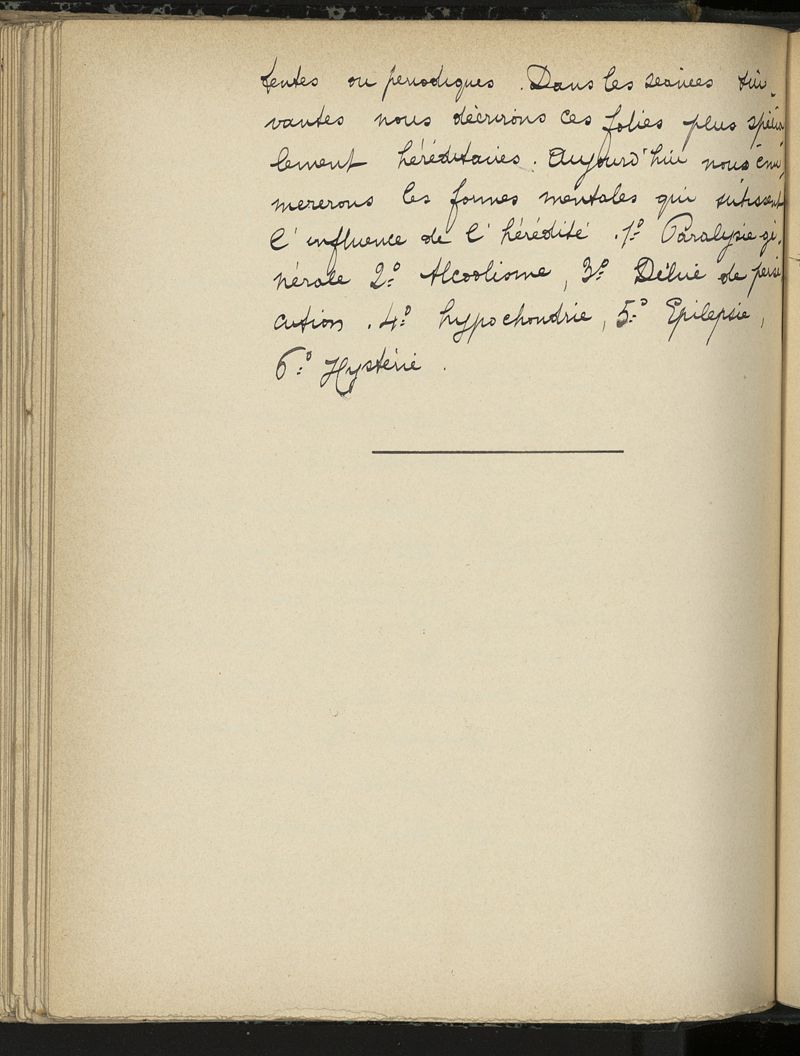 tentes ou périodiques. Dans les séances sui-
vantes nous décrirons ces folies plus spécia
lement héréditaires. Aujourd'hui nous énu-
mererons les formes mentales qui subissent
l'influence de l'hérédité. 1º Paralysie gé-
nérale 2º Alcoolisme, 3º Délire de persé
cution. 4º hypochondrie, 5º Epilepsie,
6º Hystérie.